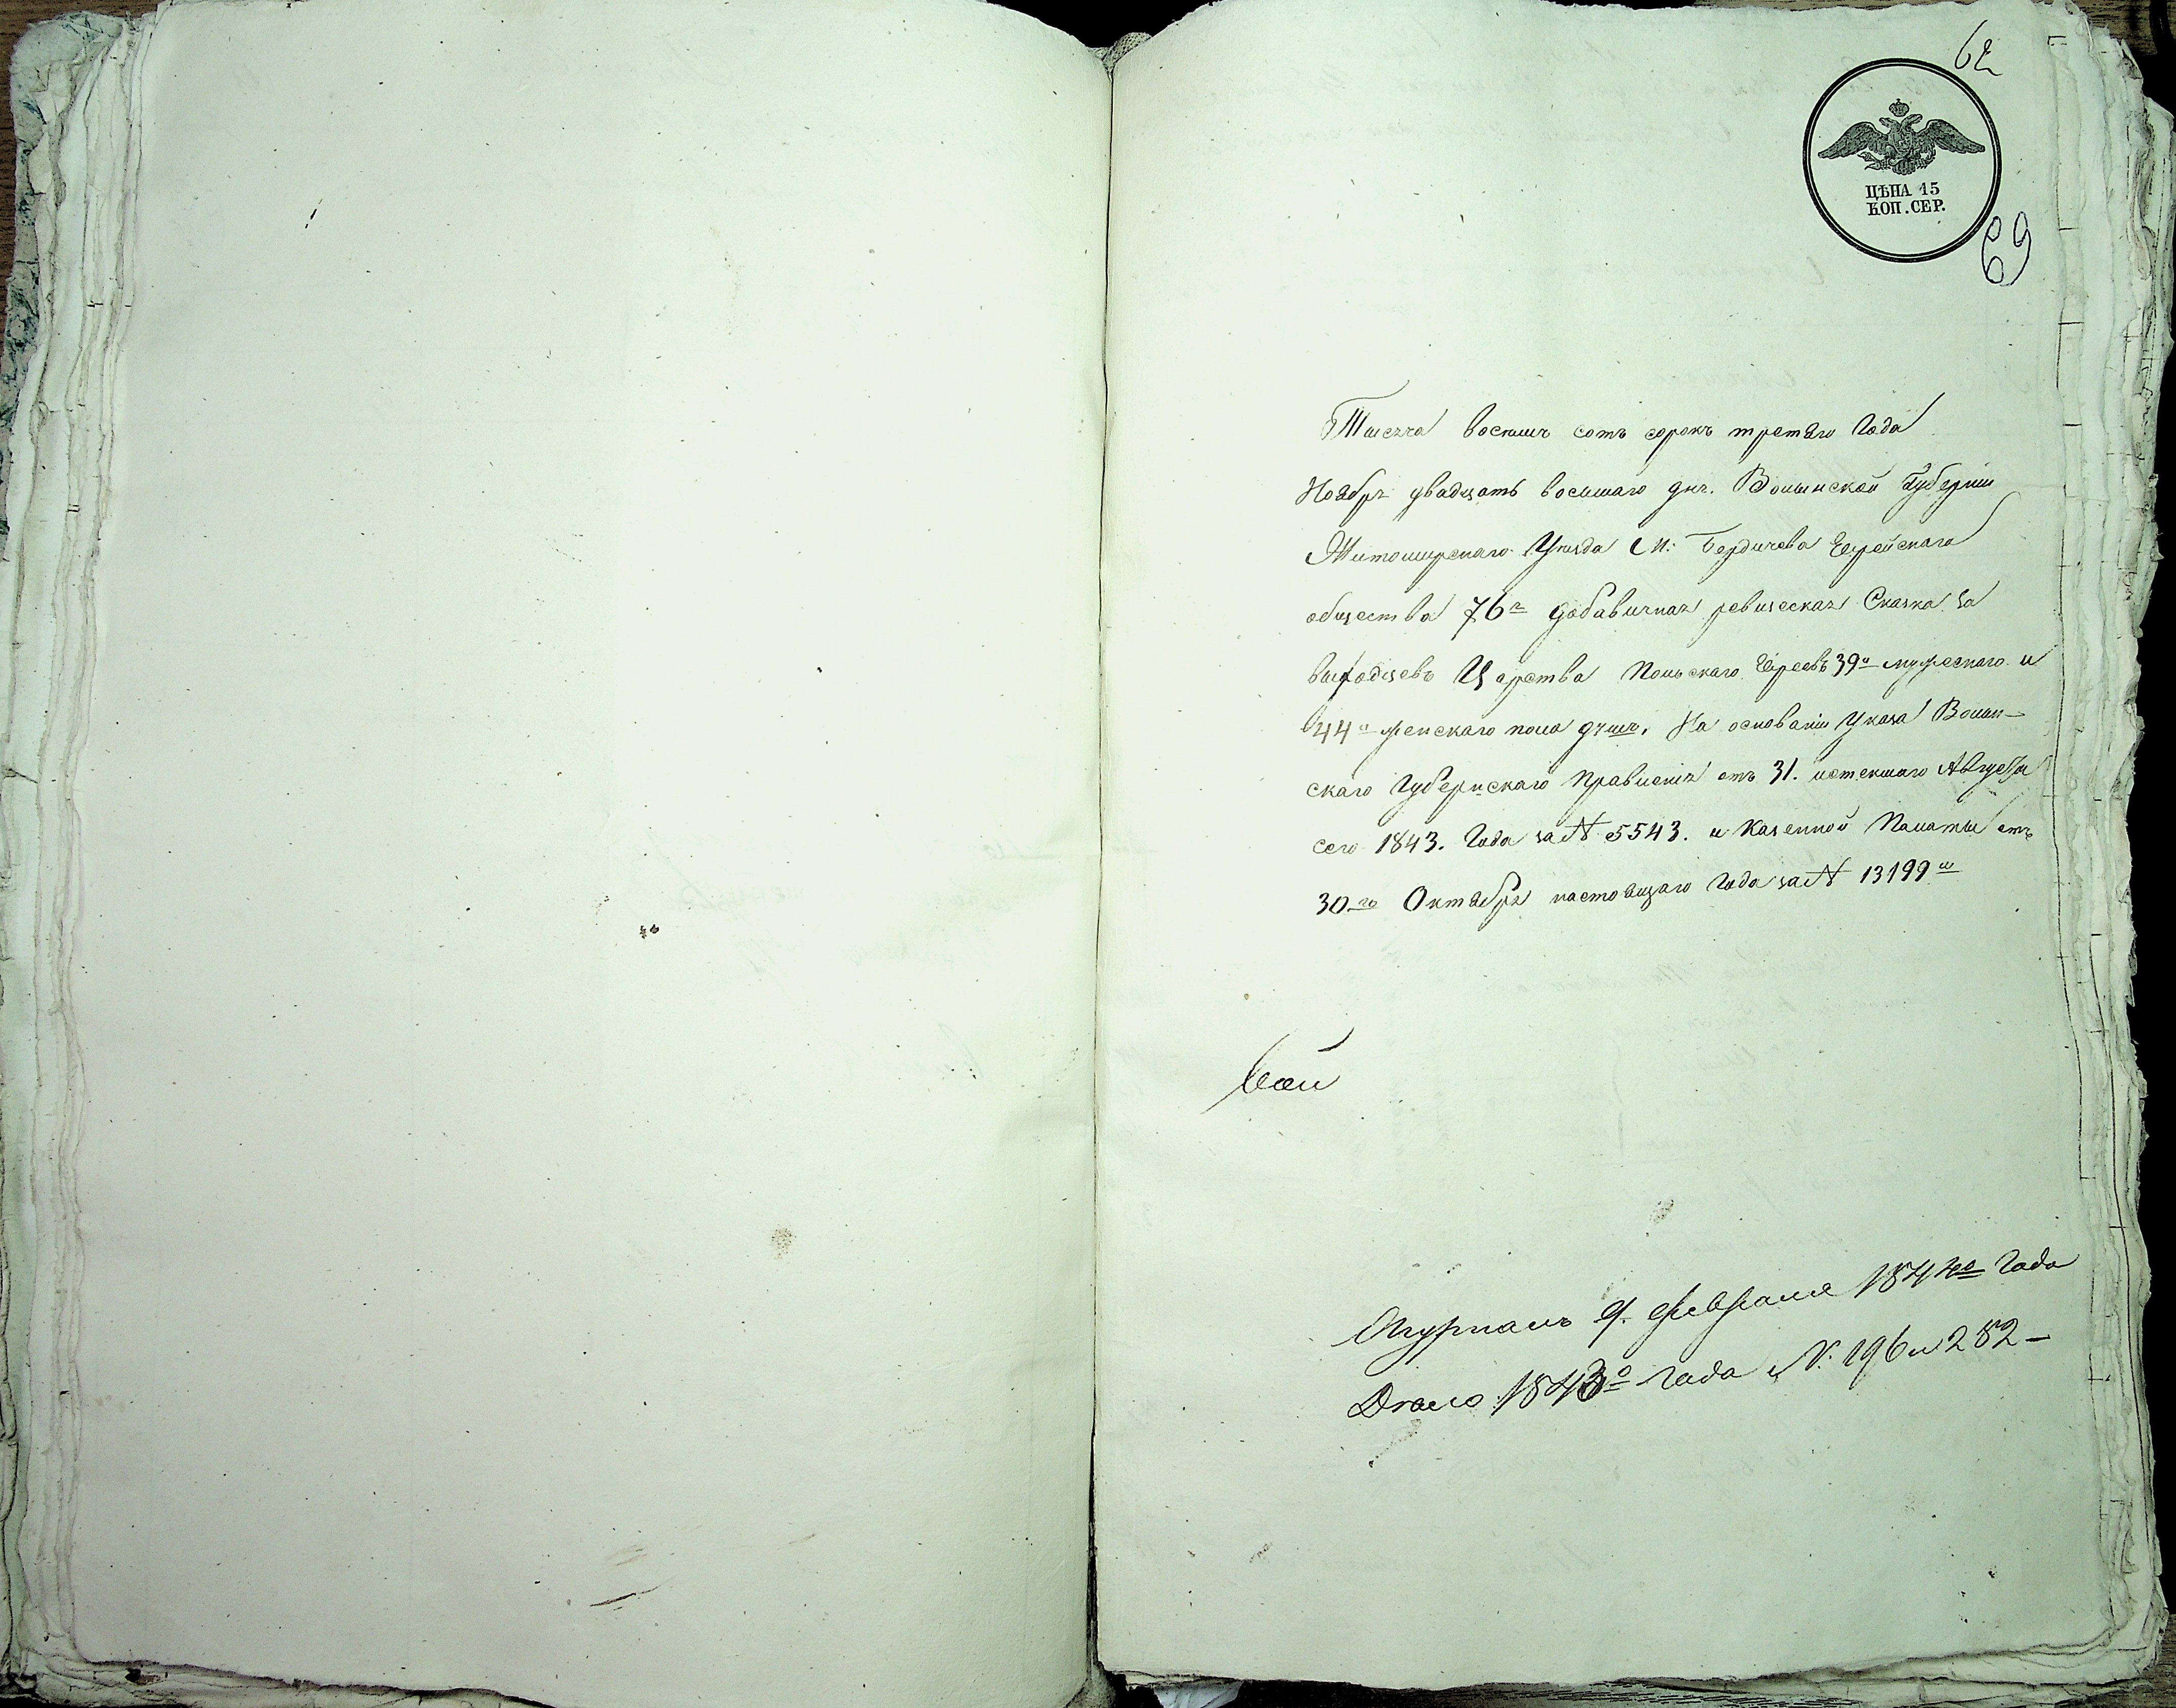 62
ЦѢНА 15
КОП. СЕР.
69
Тысяча восемь сотъ сорокъ третяго Года
Ноября двадцать восьмаго дня. Волынской Губерніи
Житомирскаго Уѣзда М: Бердичева Еврейскаго
общества 76я добавичная ревизская Сказка за
выходцевъ Царства Польскаго Евреевъ 39о мужескаго и
44о женскаго пола душъ. На основаніи Указа Волын-
скаго Губернскаго Правленія отъ 31. истекшаго Августа
сего 1843. Года за № 5543. и Казенной Палаты отъ
30го Октября настоящаго Года за № 13199м
Журналъ 9. февраля 1844го Года
Дѣло 1843о года № 196 и 282 —